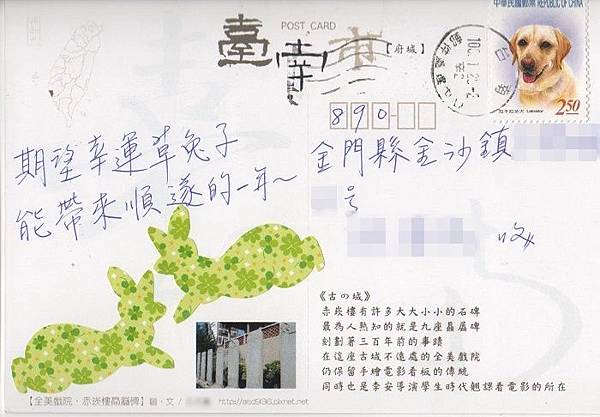 POST CARD
臺南市
【府城】
中華民國郵票 REPUBLIC OF CHINA
Labrador
2.50
890-
期望幸運草兔子
能帶來順遂的一年~
金門縣金沙鎮
號
收
《古の城》
赤崁樓有許多大大小小的石碑
最為人熟知的就是九座贔屭碑
刻劃著三百年前的事蹟
在這座古城不遠處的全美戲院
仍保留手繪電影看板的傳統
同時也是李安導演學生時代翹課看電影的所在
【全美戲院，赤崁樓贔屭碑】圖．文 /
http://asd9136.pixnet.net